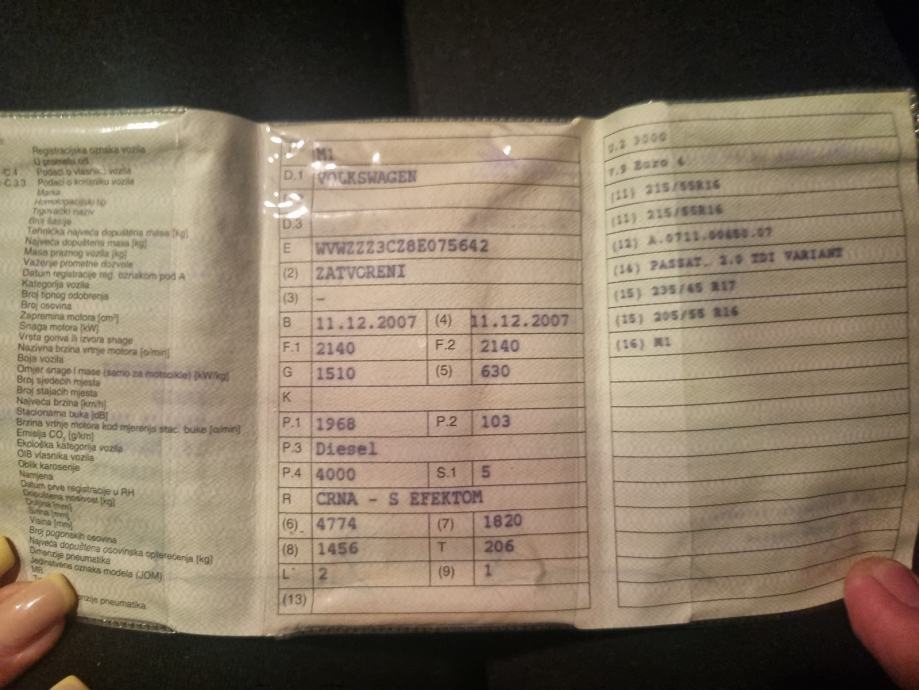 Registracijska oznaka vozila
U prometu od
C.4 Podaci o vlasnik. vozila
C.3.3 Podaci o korisniku vozila
Marka
Homologacijski tip
Trgovački naziv
Broj šasije
Tehnička najveća dopuštena masa [kg]
Najveća dopuštena masa [kg]
Masa praznog vozila [kg]
Važenje prometne dozvole
Datum registracije reg. oznakom pod A
Kategorija vozila
Broj tipnog odobrenja
Broj osovina
Zapremina motora [cm³]
Snaga motora [kW]
Vrsta goriva ili izvora snage
Nazivna brzina vrtnje motora [o/min]
Boja vozila
Omjer snage i mase (samo za motocikle) [kW/kg]
Broj sjedećih mjesta
Broj stajaćih mjesta
Najveća brzina [km/h]
Stacionarna buka [dB]
Brzina vrtnje motora kod mjerenja stac. buke [o/min]
Emisija CO₂ [g/km]
Ekološka kategorija vozila
OIB vlasnika vozila
Oblik karoserije
Namjena
Datum prve registracije u RH
Dopuštena nosivost [kg]
Duljina [mm]
Širina [mm]
Visina [mm]
Broj pogonskih osovina
Najveća dopuštena osovinska opterećenja [kg]
Dimenzije pneumatika
Jedinstvena oznaka modela (JOM)
MB
pneumatika
M1
D.1 VOLKSWAGEN
D.3
E WVWZZZ3CZ8E075642
(2) ZATVORENI
(3) –
B 11.12.2007 (4) 11.12.2007
F.1 2140 F.2 2140
G 1510 (5) 630
K
P.1 1968 P.2 103
P.3 Diesel
P.4 4000 S.1 5
R CRNA - S EFEKTOM
(6) 4774 (7) 1820
(8) 1456 T 206
L 2 (9) 1
(13)
3000
V.9 Euro 4
(11) 215/55R16
(11) 215/55R16
(12)
(14) PASSAT 2.0 TDI VARIANT
(15) 235/45 R17
(15) 205/55 R16
(16) M1